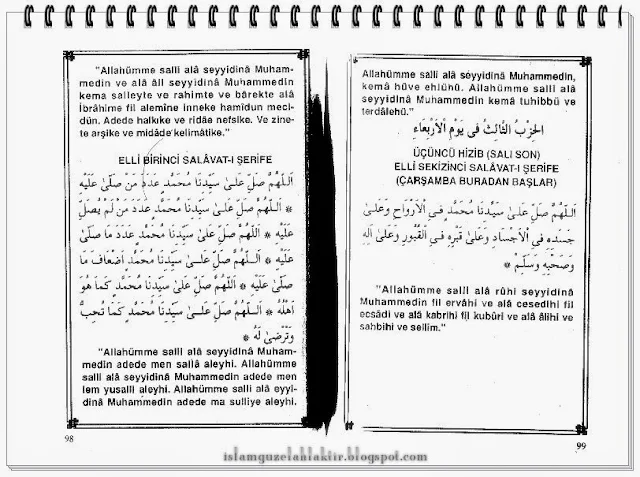 "Allahümme salli alâ seyyidinâ Muham-
medin ve alâ âli seyyidinâ Muhammedin
kema salleyte ve rahimte ve bârekte alâ
İbrâhime fil alemîne inneke hamîdun meci-
dün. Adede halkıke ve ridâe nefsike. Ve zine-
te arşike ve midâde kelimâtike."
ELLİ BİRİNCİ SALÂVAT-I ŞERİFE
اَللّٰهُمَّ صَلِّ عَلٰى سَيِّدِنَا مُحَمَّدٍ عَدَدَ مَنْ صَلّٰى عَلَيْهِ
* اَللّٰهُمَّ صَلِّ عَلٰى سَيِّدِنَا مُحَمَّدٍ عَدَدَ مَنْ لَمْ يُصَلِّ
عَلَيْهِ * اَللّٰهُمَّ صَلِّ عَلٰى سَيِّدِنَا مُحَمَّدٍ عَدَدَ مَا صُلِّىَ
عَلَيْهِ * اَللّٰهُمَّ صَلِّ عَلٰى سَيِّدِنَا مُحَمَّدٍ اَضْعَافَ مَا
صُلِّىَ عَلَيْهِ * اَللّٰهُمَّ صَلِّ عَلٰى سَيِّدِنَا مُحَمَّدٍ كَمَا هُوَ
اَهْلُهُ * اَللّٰهُمَّ صَلِّ عَلٰى سَيِّدِنَا مُحَمَّدٍ كَمَا تُحِبُّ
وَتَرْضٰى لَهُ *
"Allahümme salli alâ seyyidinâ Muham-
medin adede men sallâ aleyhi. Allahümme
salli alâ seyyidinâ Muhammedin adede men
lem yusalli aleyhi. Allahümme salli alâ eyyi-
dinâ Muhammedin adede ma sulliye aleyhi.
98
Allahümme salli alâ séyyidinâ Muhammedin,
kemâ hüve ehlühü. Allahümme salli alâ
seyyidinâ Muhammedin kemâ tuhibbü ve
terdâlehü."
اَلْحِزْبُ الثَّالِثُ فِى يَوْمِ الْاَرْبِعَاءِ
ÜÇÜNCÜ HİZİB (SALI SON)
ELLİ SEKİZİNCİ SALÂVAT-I ŞERİFE
(ÇARŞAMBA BURADAN BAŞLAR)
اَللّٰهُمَّ صَلِّ عَلٰى رُوحِ سَيِّدِنَا مُحَمَّدٍ فِى الْاَرْوَاحِ وَعَلٰى
جَسَدِهِ فِى الْاَجْسَادِ وَعَلٰى قَبْرِهِ فِى الْقُبُورِ وَعَلٰى اٰلِهِ
وَصَحْبِهِ وَسَلِّمْ *
"Allahümme salli alâ rûhi seyyidinâ
Muhammedin fil ervâhi ve alâ cesedihi fil
ecsâdi ve alâ kabrihi fil kubûri ve alâ âlihi ve
sahbihi ve sellim."
99
islamguzelahlaktir.blogspot.com